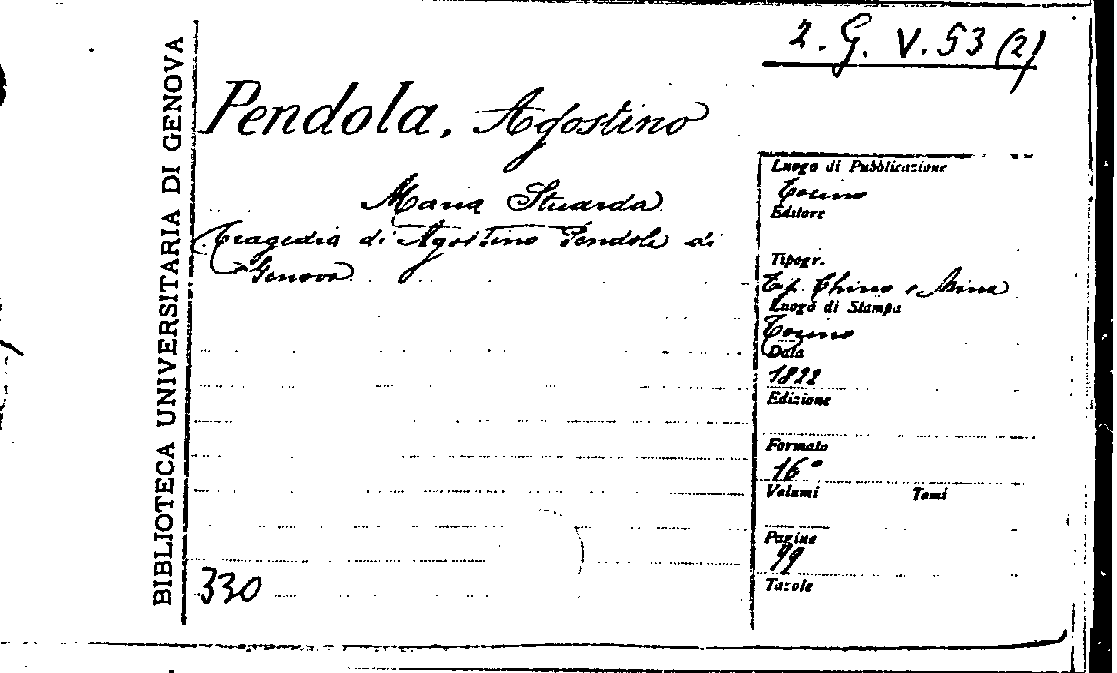 BIBLIOTECA UNIVERSITARIA DI GENOVA
2. G. V. 53 (2)
Pendola, Agostino
Maria Stuarda
Tragedia di Agostino Pendola di
Genova
330
Luogo di Pubblicazione
Torino
Editore
Tipogr.
Tip. Chirio e Mina
Luogo di Stampa
Torino
Data
1822
Edizione
Formato
16°
Volumi Tomi
Pagine
99
Tavole